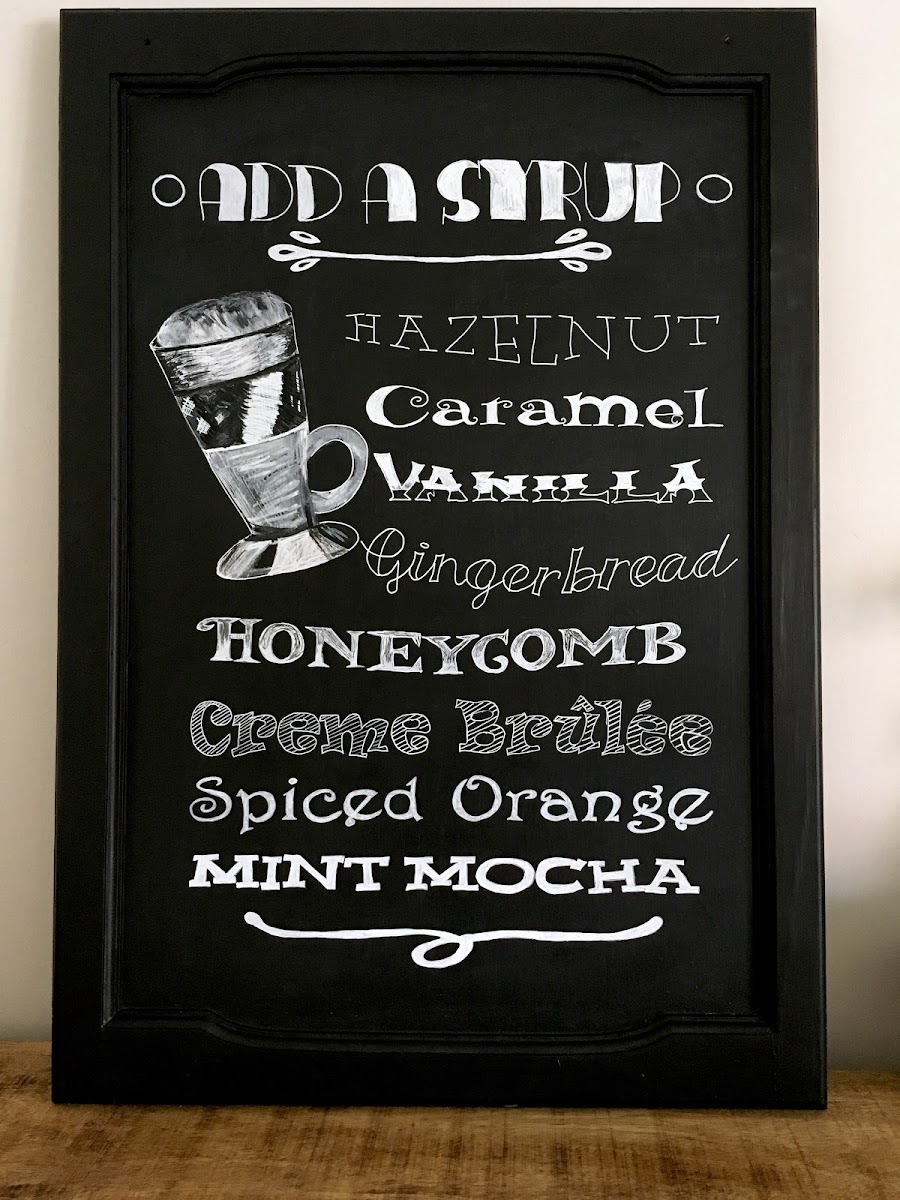 ADD A SYRUP
HAZELNUT
Caramel
VANILLA
Gingerbread
HONEYCOMB
Creme Brûlée
Spiced Orange
MINT MOCHA